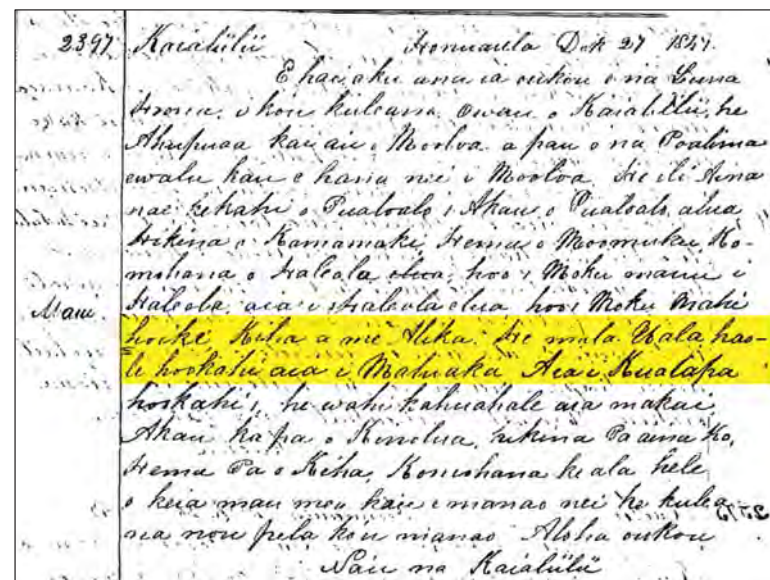 2397 Kaialiilii Honuaula Dek 27 1847.
E hai aku ana ia oukou e na Luna
Hoona, i kou kuleana. Owau o Kaialiilii, he
Ahupuaa kau ai i Mooloa a pau o na Poalima
ewalu kau e hana nei i Mooloa He ili Aina
nae kekahi o Pualoalo, Akau o Pualoalo alua
Hikina o Kamamaki, Hema o Moomuku, Ko-
mohana o Haleola elua hoo i Moku mauu i
Maui Haleola, aia i Haleola elua hoo i Moku Mahi
hoike Kiha a me Alika. He mala Uala hao-
le hookahi aia i Maluaka Aia i Kualapa
hookahi, he wahi kahuahale aia makai,
Akau ka pa o Kenolua, Hikina Pa aina Ko,
Hema Pa o Keha, Komohana ke ala hele
o keia mau mea kau e manao nei he kulea
na nou pela kou manao Aloha oukou
Na'u na Kaialiilii